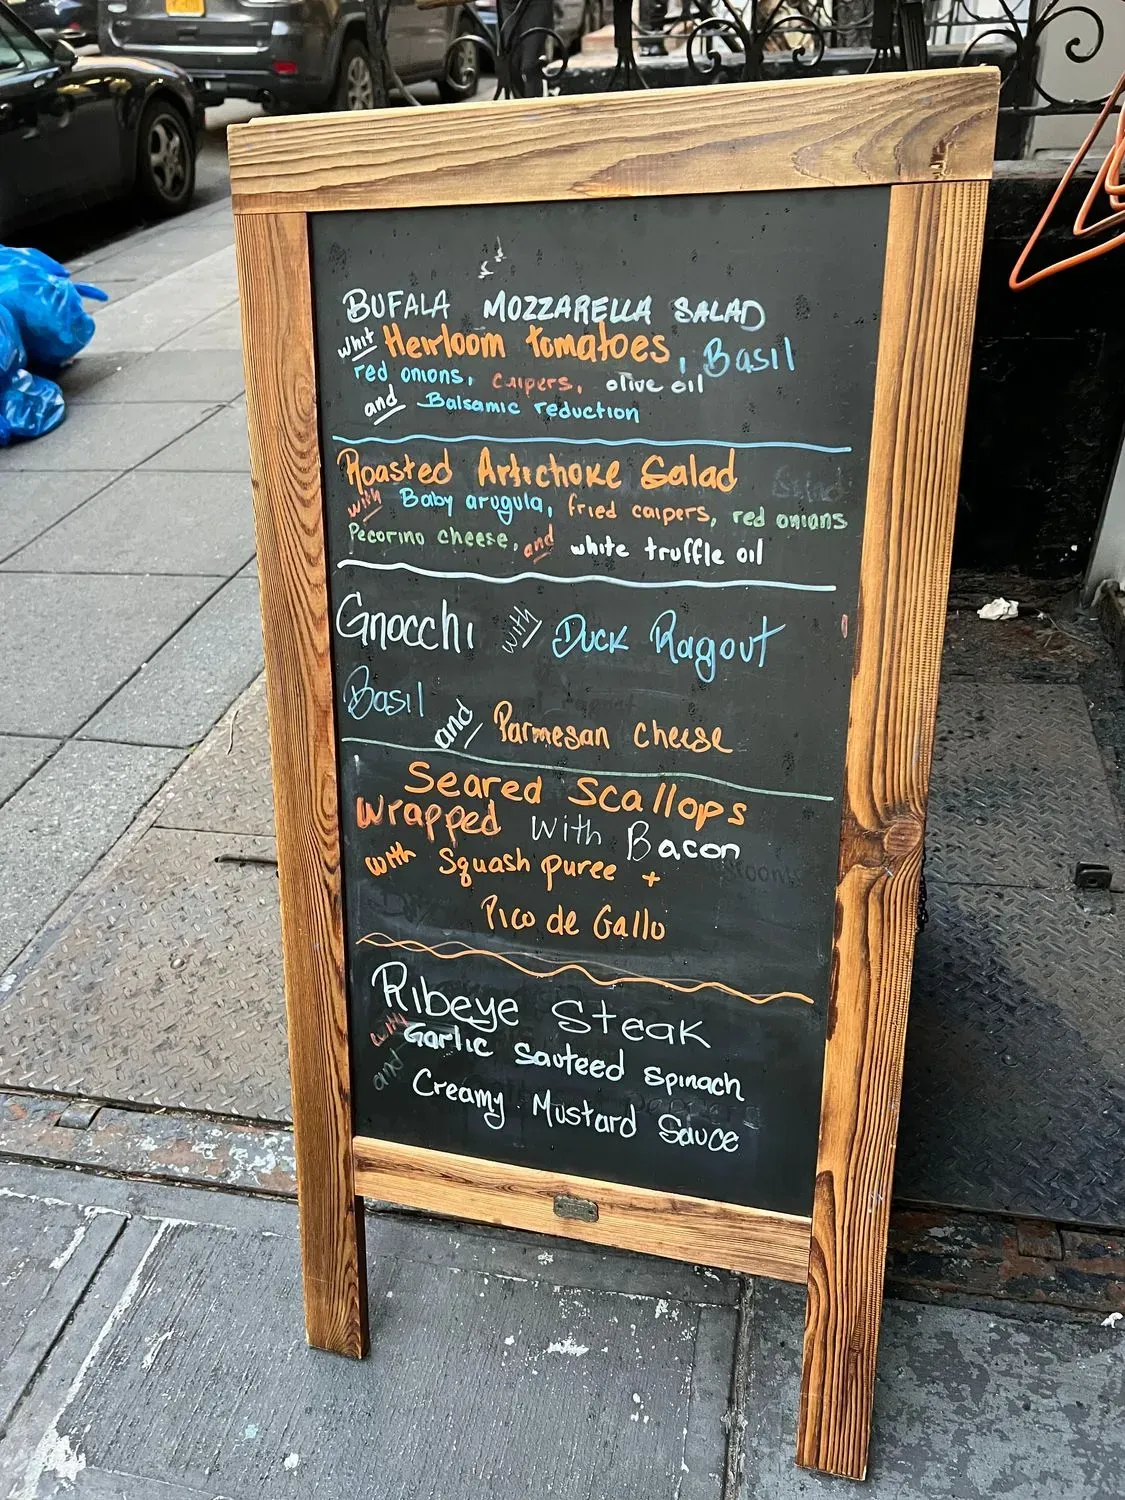 BUFALA MOZZARELLA SALAD
whit Heirloom tomatoes, Basil
red onions, caipers, olive oil
and Balsamic reduction
Roasted Artichoke Salad
with Baby arugula, fried caipers, red onions
Pecorino cheese, and white truffle oil
Gnocchi with Duck Ragout
Basil and Parmesan cheese
Seared Scallops
wrapped with Bacon
with Squash puree +
Pico de Gallo
Ribeye Steak
with Garlic sauteed spinach
and Creamy Mustard Sauce